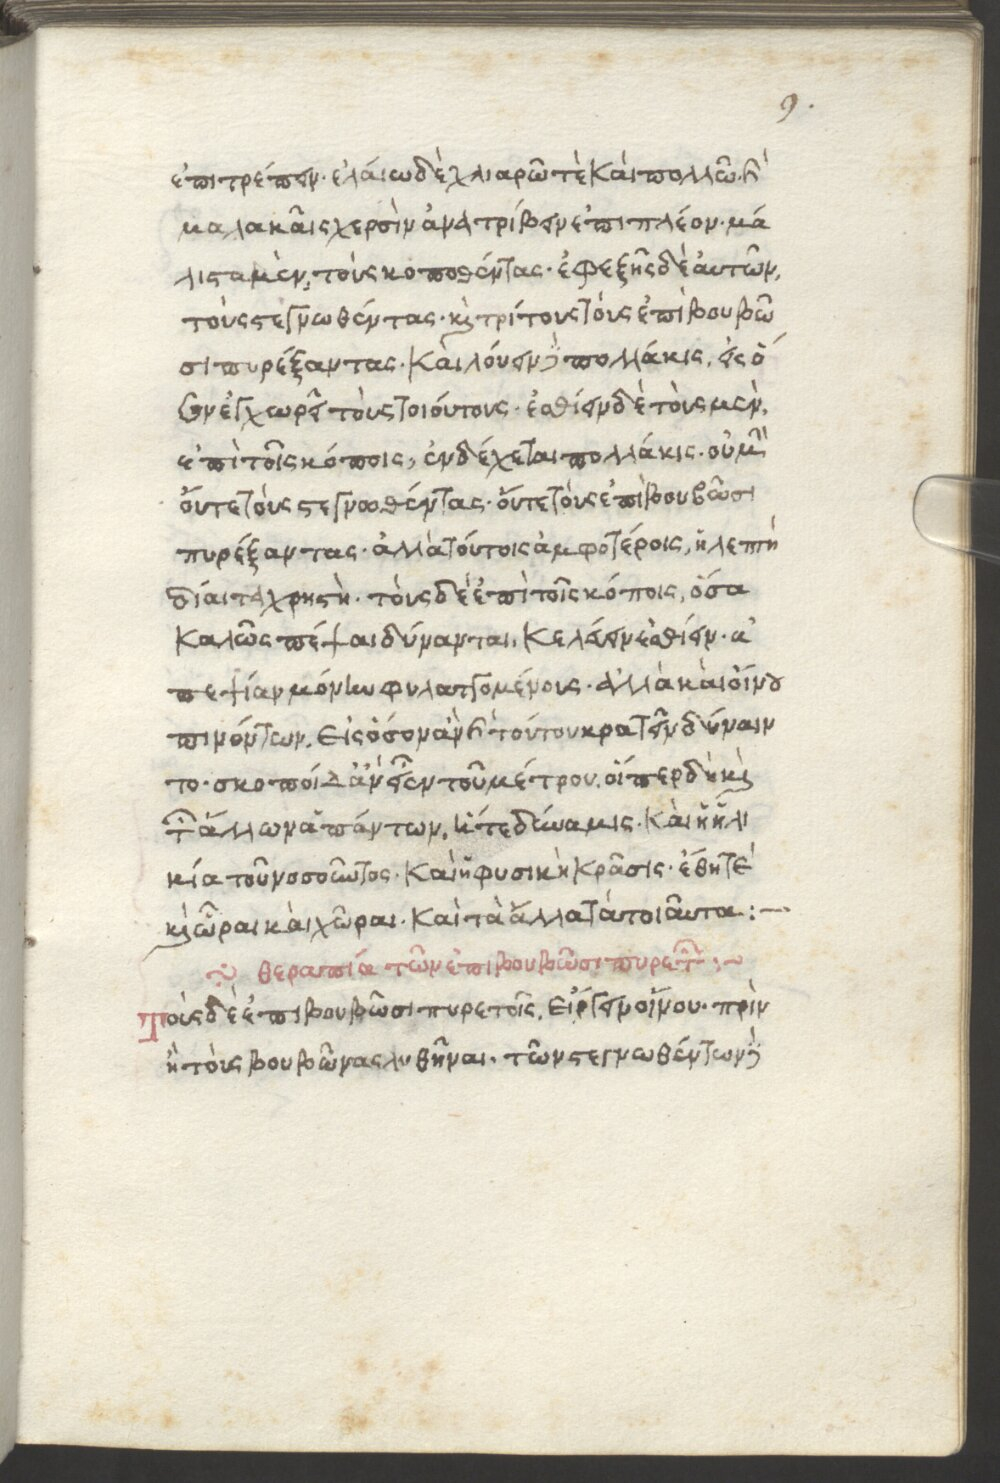 9.
ἐπιτρέπειν· ἐλαίω δὲ χλιαρῶ τὲ καὶ πολλῶ. καὶ
μαλακαῖς χερσὶν ἀνατρίβειν ἐπιπλέον· μά
λιστα μὲν, τοὺς κοπωθέντας· ἐφεξῆς δὲ αὐτῶν,
τοὺς στεγνωθέντας· καὶ τρίτους τοὺς ἐπὶ βουβῶ
σι πυρέξαντας· Καὶ λούειν δὲ πολλάκις, εἰς ὅ
σον ἐγχωρεῖ τοὺς τοιούτους· ἐσθίειν δὲ τοῖς μὲν,
ἐπὶ τοῖς κόποις, ἐνδέχεται πολλάκις· οὐ μὴν
οὔτε τοὺς στεγνωθέντας· οὔτε τοὺς ἐπὶ βουβῶσι
πυρέξαντας· ἀλλὰ τούτοις ἀμφοτέροις, ἡ λεπτὴ
δίαιτα χρηστὴ· τοὺς δὲ ἐπὶ τοῖς κόποις, ὅσα
καλῶς πέψαι δύνανται, κελεύειν ἐσθίειν· ἀ
πεψίαν μόνην φυλαττομένοις· ἀλλὰ καὶ οἴνου
πινόντων, εἰς ὅσον ἂν καὶ τούτου κρατεῖν δύναιν
το· σκοποὶ δ' ἂν εἶεν τοῦ μέτρου, οἵπερ δὴ καὶ
τῶν ἄλλων ἁπάντων, ἥ τε δύναμις· Καὶ ἡ ἡλι
κία τοῦ νοσοῦντος· Καὶ ἡ φυσικὴ κρᾶσις· ἔθη τὲ
καὶ ὧραι καὶ χῶραι· Καὶ τὰ ἄλλα τὰ τοιαῦτα:—
θεραπεία τῶν ἐπὶ βουβῶσι πυρετῶν:~
Τοῖς δὲ ἐπὶ βουβῶσι πυρετοῖς, εἴργειν οἴνου· πρὶν
ἢ τοὺς βουβῶνας λυθῆναι· τῶν στεγνωθέντων δὲ